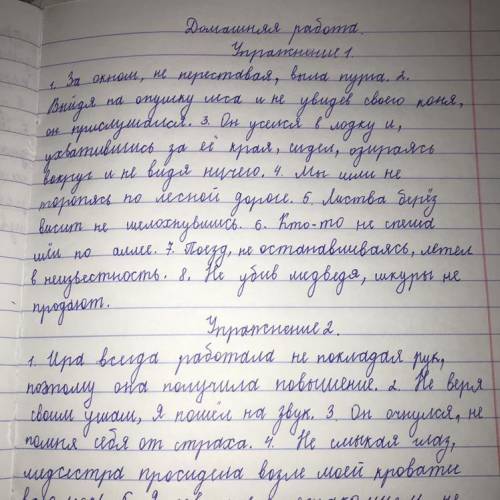 Домашняя работа.
Упражнение 1.
1. За окном, не переставая, выла пурга. 2.
Выйдя на опушку леса и не увидев своего коня,
он прислушался. 3. Он уселся в лодку и,
ухватившись за её края, сидел, озираясь
вокруг и не видя ничего. 4. Мы шли не
торопясь по лесной дороге. 5. Листва берёз
висит не шелохнувшись. 6. Кто-то не спеша
шёл по аллее. 7. Поезд, не останавливаясь, летел
в неизвестность. 8. Не убив медведя, шкуры не
продают.
Упражнение 2.
1. Ира всегда работала не покладая рук,
поэтому она получила повышение. 2. Не веря
своим ушам, я пошёл на звук. 3. Он очнулся, не
помня себя от страха. 4. Не смыкая глаз,
медсестра просидела возле моей кровати